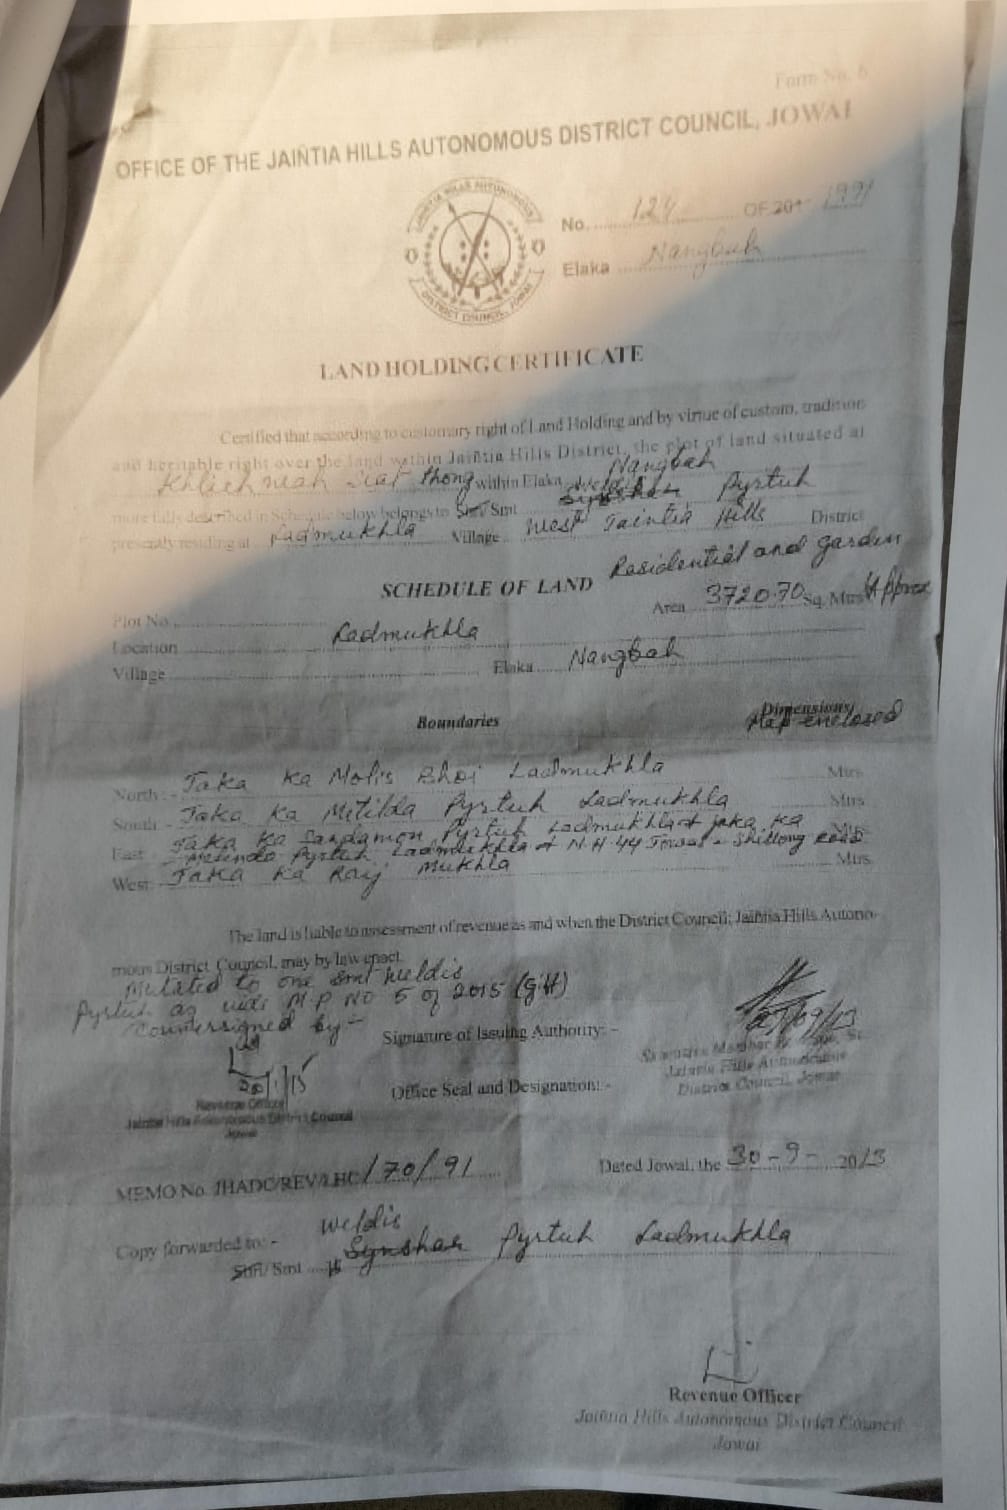 Form No. 6
OFFICE OF THE JAIÑTIA HILLS AUTONOMOUS DISTRICT COUNCIL, JOWAI
JAIÑTIA HILLS AUTONOMOUS
DISTRICT COUNCIL, JOWAI
No. 124 OF 201 1991
Elaka Nangbah
LAND HOLDING CERTIFICATE
Certified that according to customary right of Land Holding and by virtue of custom, tradition
and heritable right over the land within Jaiñtia Hills District, the plot of land situated at
Khliehneah Siat thong within Elaka Nangbah
more fully described in Schedule below belongs to Shri/Smt Weldis Synshar Pyrtuh
presently residing at Ladmukhla Village West Jaintia Hills District
Residential and garden
SCHEDULE OF LAND
Plot No. Area 3720.70 Sq. Mtrs Approx
Location Ladmukhla
Village Elaka Nangbah
Boundaries Dimensions
Map enclosed
North :- Jaka Ka Molis Bhoi Ladmukhla Mtrs
South - Jaka Ka Metilda Pyrtuh Ladmukhla Mtrs
East Jaka Ka Sandamon Pyrtuh Ladmukhla & jaka ka
Melinda Pyrtuh, Ladmukhla & N.H. 44 Jowai - Shillong Road
West Jaka Ka Ray Mukhla Mtrs
The land is liable to assessment of revenue as and when the District Council; Jaiñtia Hills Autono-
mous District Council, may by law enact.
Mutated to one Smt Weldis
Pyrtuh as vide M.P NO 5 of 2015 (gift)
Countersigned by :-
Signature of Issuing Authority: -
20/1/15
Revenue Officer
Jaintia Hills Autonomous District Council
Jowai
Executive Member
Jaintia Hills Autonomous
District Council, Jowai
Office Seal and Designation: -
MEMO No. JHADC/REV/LHC/70/91 Dated Jowai, the 30-9- 2013
Weldis
Copy forwarded to: -
Shri/Smt Synshar Pyrtuh Ladmukhla
Revenue Officer
Jaiñtia Hills Autonomous District Council
Jowai